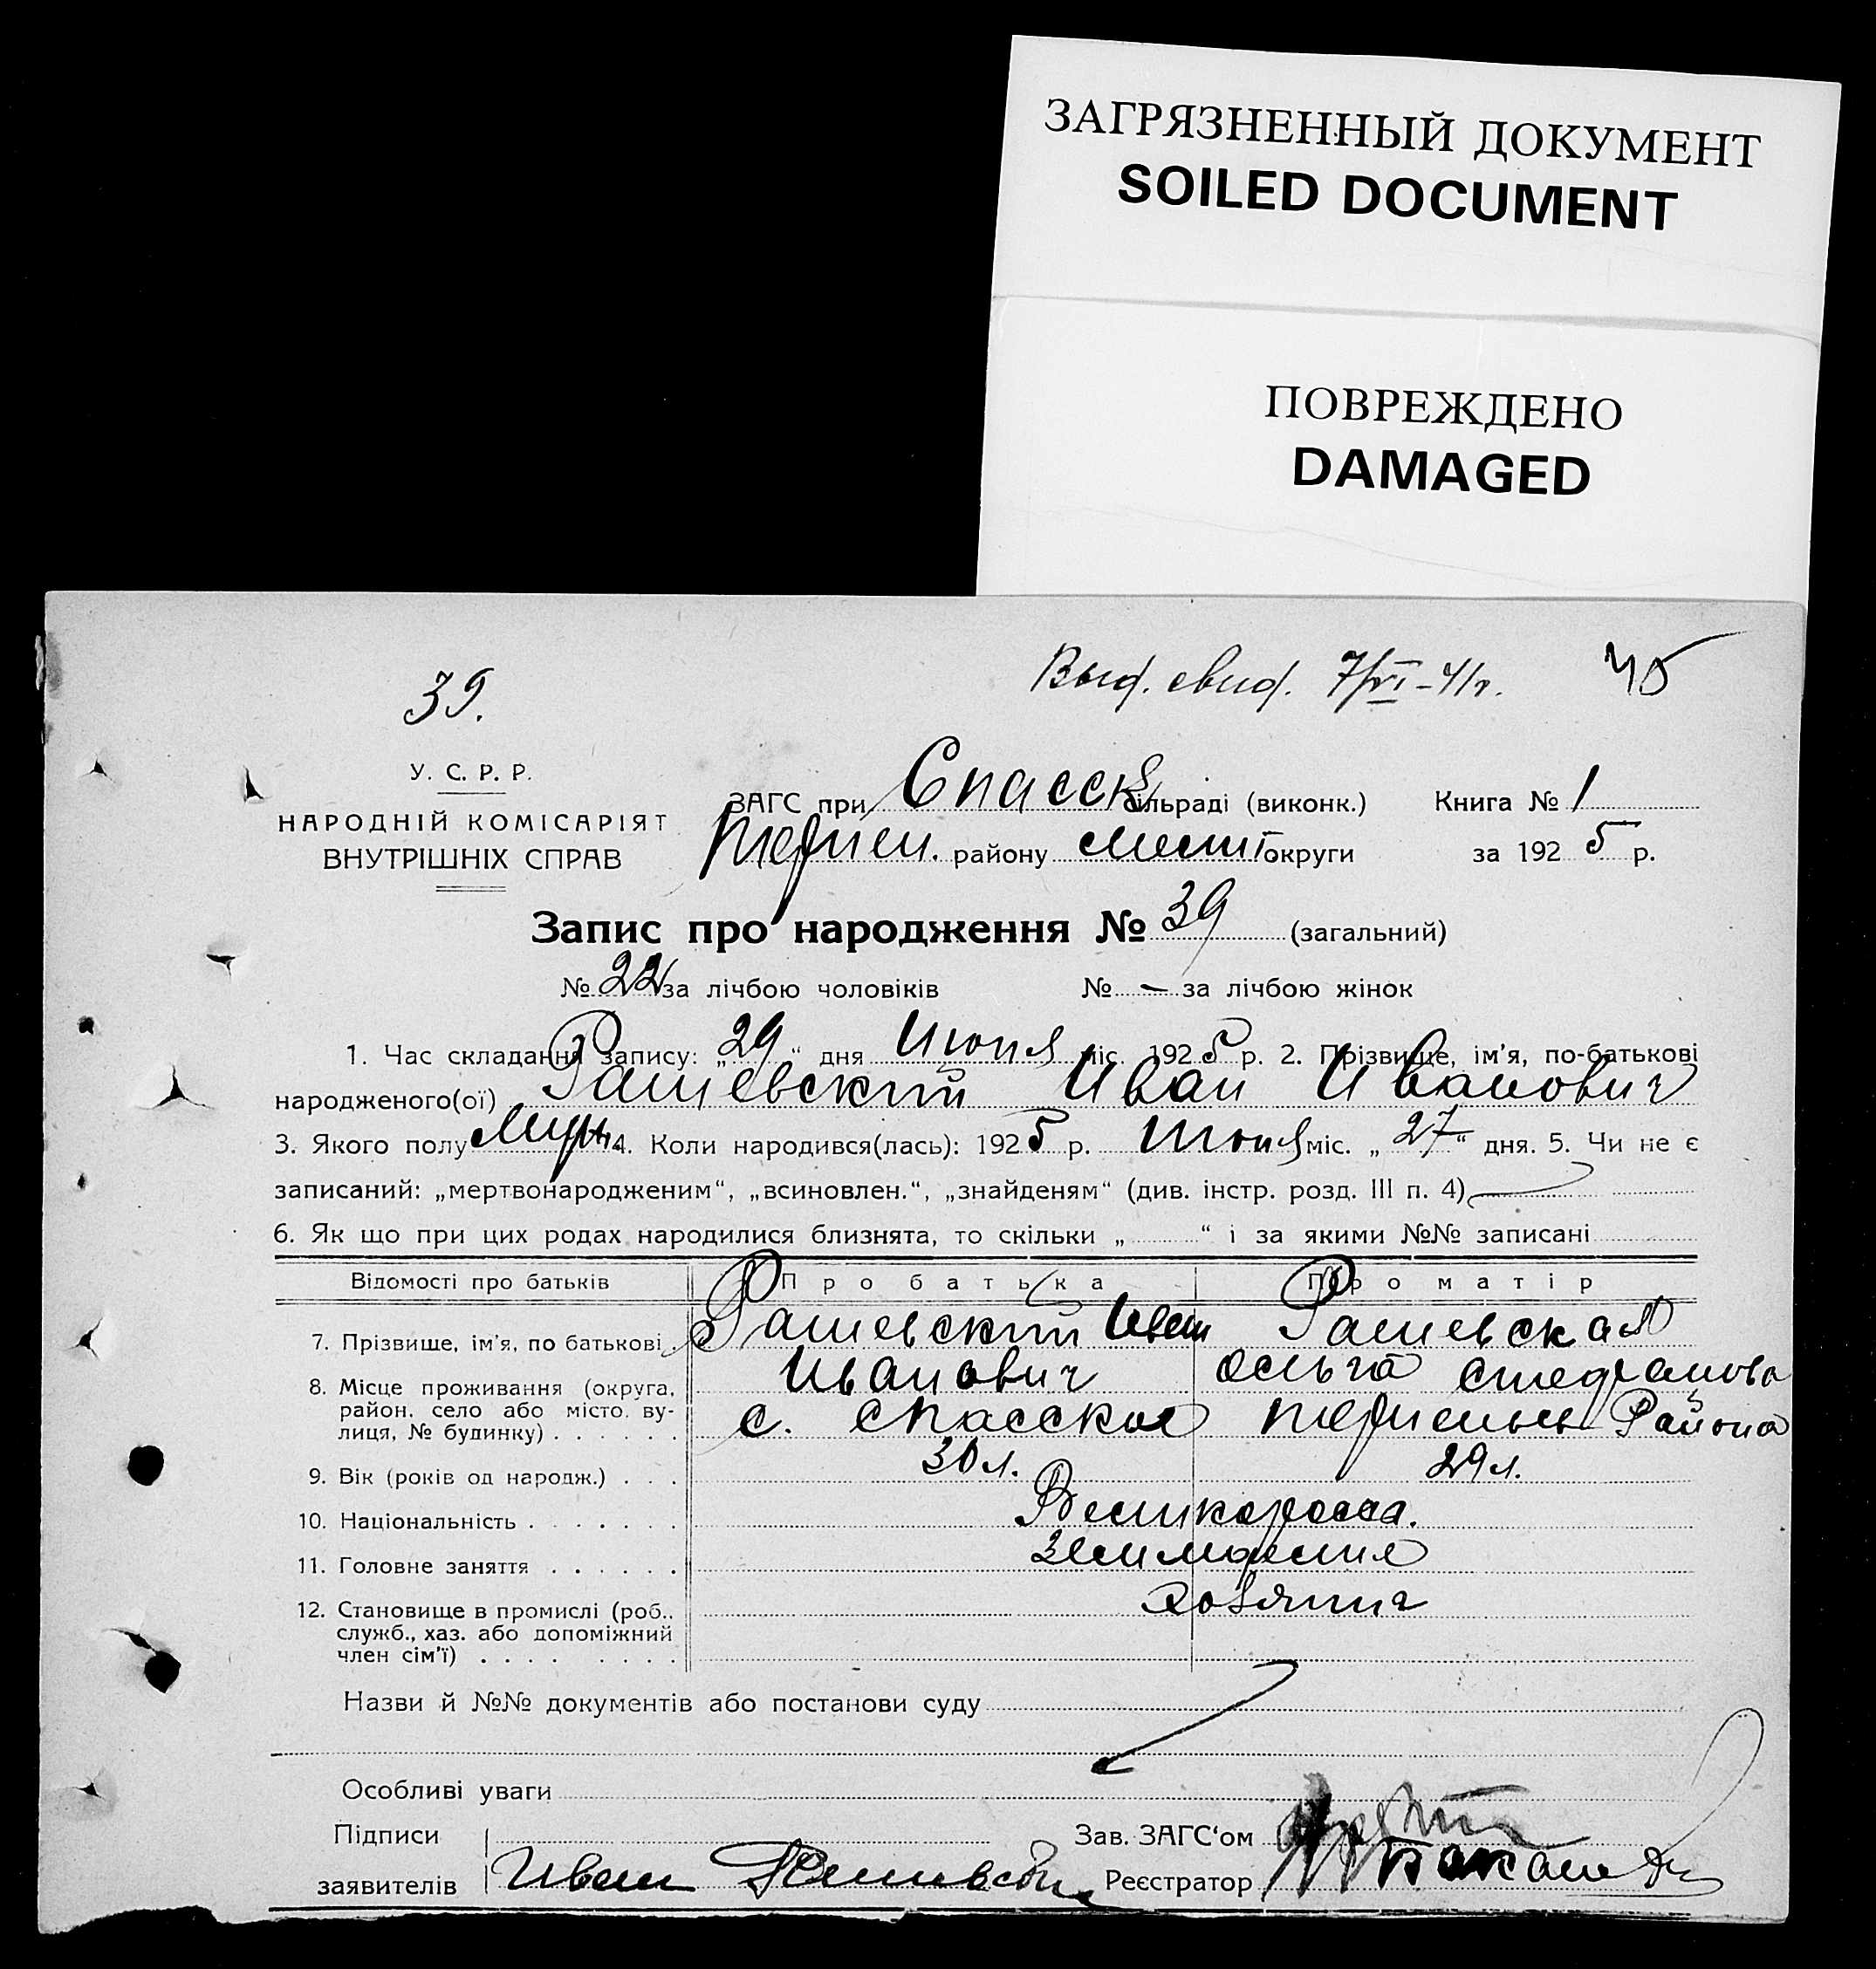 ЗАГРЯЗНЕННЫЙ ДОКУМЕНТ
SOILED DOCUMENT
ПОВРЕЖДЕНО
DAMAGED
39.
Выд. свид. 7/VI-41г.
У. С. Р. Р.
НАРОДНІЙ КОМІСАРІЯТ
ВНУТРІШНІХ СПРАВ
ЗАГС при Спасск сільраді (виконк.) Книга № 1
району округи за 1925 р.
Запис про народження № 39 (загальний)
№ 22 за лічбою чоловіків № — за лічбою жінок
1. Час складання запису: „29“ дня Июня міс. 1925 р. 2. Прізвище, ім'я, по-батькові
народженого(ої) Рашевский Иван Иванович
3. Якого полу Муж. 4. Коли народився(лась): 1925 р. Июня міс. „27“ дня. 5. Чи не є
записаний: „мертвонародженим“, „всиновлен.“, „знайденям“ (див. інстр. розд. III п. 4)
6. Як що при цих родах народилися близнята, то скільки „ “ і за якими №№ записані
Відомості про батьків Про батька Про матір
7. Прізвище, ім'я, по батькові Рашевский Иван Рашевская
Иванович Ольга Стефанова
8. Місце проживання (округа,
район, село або місто, ву-
лиця, № будинку) с. Спасское Района
9. Вік (років од народж.) 30 л. 29 л.
10. Національність Великоросса.
11. Головне заняття Земледелие
12. Становище в промислі (роб.,
служб., хаз. або допоміжний
член сім'ї)
Назви й №№ документів або постанови суду
Особливі уваги
Підписи Зав. ЗАГС'ом
заявителів Иван Рашевский Реєстратор